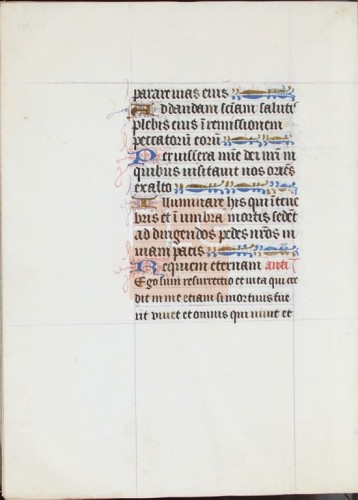 parare vias eius
Ad dandam sciam saluti
plebis eius ī remissionem
peccatorū eorū
Per viscera mie dei nr̄i in
quibus visitavit nos oriēs
ex alto
Illuminare his qui ī tene
bris et ī umbra mortis sedēt
ad dirigendos pedes nr̄os in
viam pacis
Requiem eternam anti
Ego sum resurrectio et vita qui cre
dit in me etiam si mortuus fue
rit vivet et omnis qui vivit et